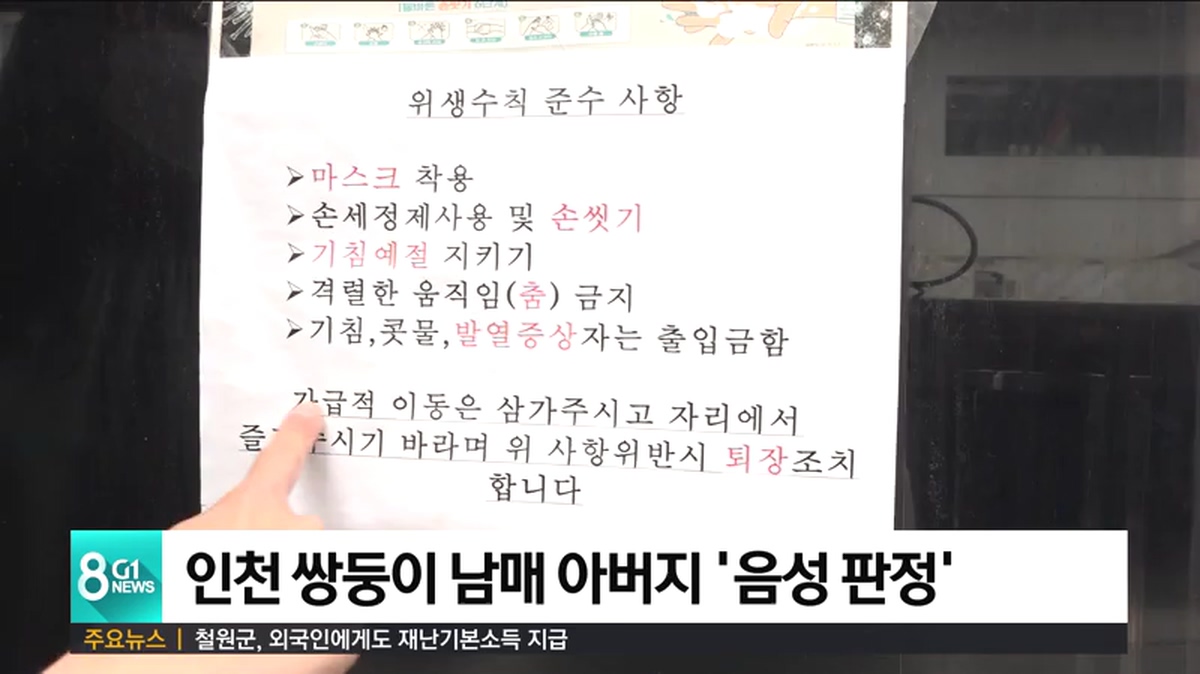 위생수칙 준수 사항
➢마스크 착용
➢손세정제사용 및 손씻기
➢기침예절 지키기
➢격렬한 움직임(춤) 금지
➢기침,콧물,발열증상자는 출입금함
가급적 이동은 삼가주시고 자리에서
바라며 위 사항위반시 퇴장조치
합니다
8 G1 NEWS
인천 쌍둥이 남매 아버지 '음성 판정'
주요뉴스 | 철원군, 외국인에게도 재난기본소득 지급